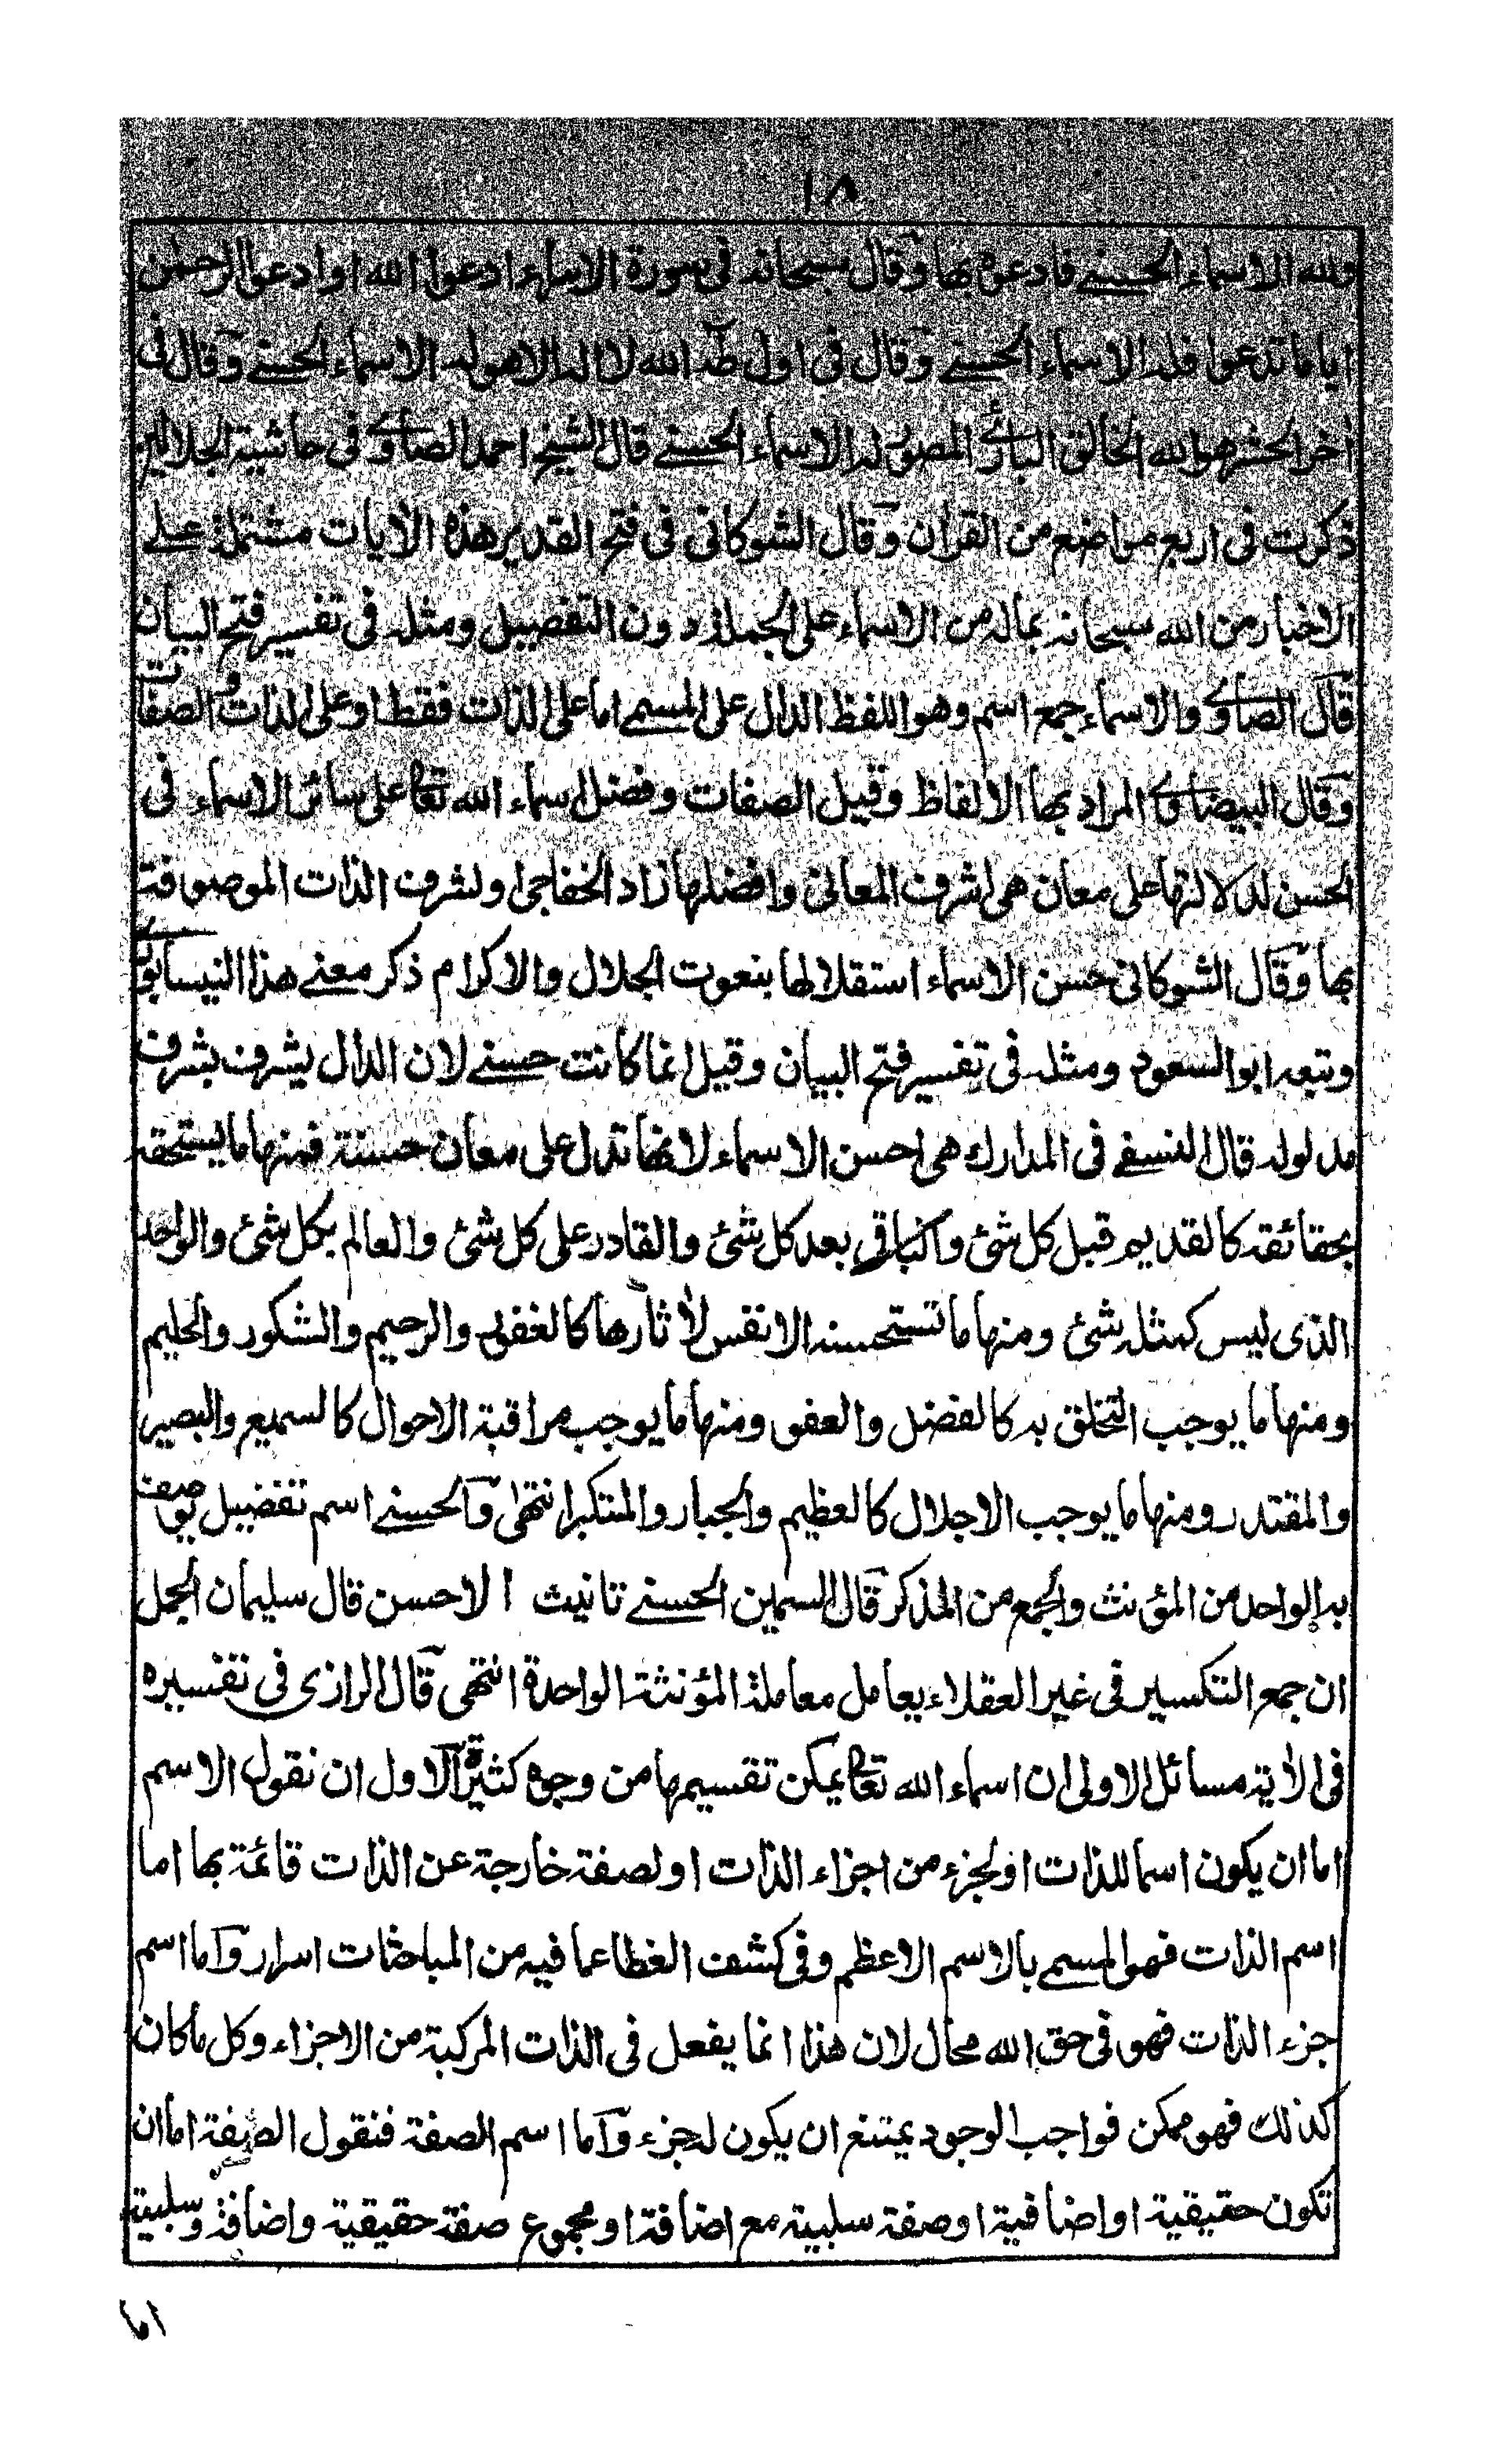 ١٨
ولله الاسماء الحسنے فادعوه بها وقال سبحانه فى سورة الاسراء ادعوا الله او ادعوا الرحمن
اياما تدعوا فله الاسماء الحسنے وقال فى اول طه الله لا اله الا هو له الاسماء الحسنے وقال فى
اخر الحشر هو الله الخالق البارئ المصور له الاسماء الحسنے قال الشيخ احمد الصاوے فى حاشية الجلالين
ذكرت فى اربع مواضع من القرآن وقال الشوكانى فى فتح القدير هذه الآيات مشتملة علے
الاخبار من الله سبحانه بماله من الاسماء على الجملة دون التفصيل ومثله فى تفسير فتح البيان
قال الصاوے والاسماء جمع اسم وهو اللفظ الدال على المسمے اما على الذات فقط او على الذات والصفات
وقال البيضاوے المراد بها الالفاظ وقيل الصفات وفضل اسماء الله تعالى على سائر الاسماء فى
الحسن لدلالتها على معان هى اشرف المعانى وافضلها زاد الخفاجى اولشرف الذات الموصوفة
بها وقال الشوكانى حسن الاسماء استقلالها بنعوت الجلال والاكرام ذكر معنے هذا النيسابورے
وتبعه ابو السعود ومثله فى تفسير فتح البيان وقيل انما كانت حسنے لان الدال يشرف بشرف
مدلوله قال النسفے فى المدارك هى احسن الاسماء لانها تدل على معان حسنة فمنها ما يستحقه
بحقائقه كالقديم قبل كل شئ والباقى بعد كل شئ والقادر على كل شئ والعالم بكل شئ والواحد
الذى ليس كمثله شئ ومنها ما تستحسنه الانفس لآثارها كالغفور والرحيم والشكور والحليم
ومنها ما يوجب التخلق به كالفضل والعفو ومنها ما يوجب مراقبة الاحوال كالسميع والبصير
والمقتدر ومنها ما يوجب الاجلال كالعظيم والجبار والمتكبر انتهى والحسنے اسم تفضيل يوصف
به الواحد من المؤنث والجمع من المذكر قال السمين الحسنے تانيث الاحسن قال سليمان الجمل
ان جمع التكسير فى غير العقلاء يعامل معاملة المؤنثة الواحدة انتهى قال الرازى فى تفسيره
فى الآية مسائل الاولى ان اسماء الله تعالى يمكن تقسيمها من وجوه كثيرة الاول ان نقول الاسم
اما ان يكون اسما للذات او لجزء من اجزاء الذات او لصفة خارجة عن الذات قائمة بها اما
اسم الذات فهو المسمے بالاسم الاعظم وفى كشف الغطا عما فيه من المباحثات اسرار واما اسم
جزء الذات فهو فى حق الله محال لان هذا انما يفعل فى الذات المركبة من الاجزاء وكل ما كان
كذلك فهو ممكن فواجب الوجود يمتنع ان يكون له جزء واما اسم الصفة فنقول الصفة اما ان
تكون حقيقية او اضافية او صفة سلبية مع اضافة او مجموع صفة حقيقية واضافة وسلبية
اما